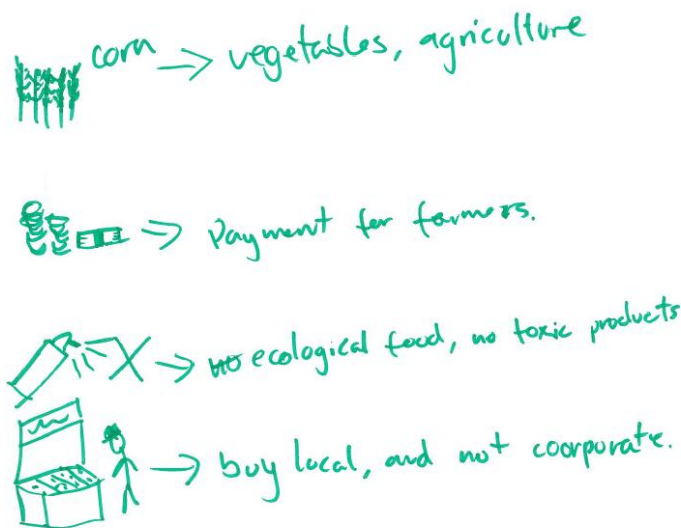 corn → vegetables, agriculture
→ Payment for farmers.
→ ecological food, no toxic products
→ buy local, and not coorporate.